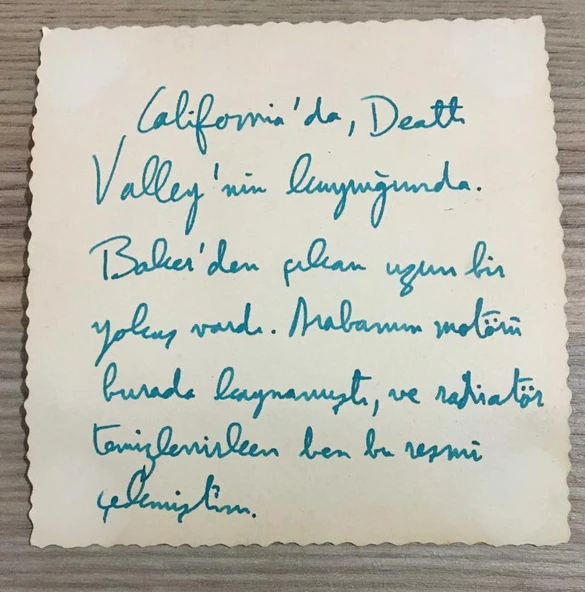 California'da, Death
Valley'nin kuyruğunda.
Baker'den çıkan uzun bir
yokuş vardı. Arabamın motörü
burada kaynamıştı, ve radiatör
temizlenirken ben bu resmi
çekmiştim.